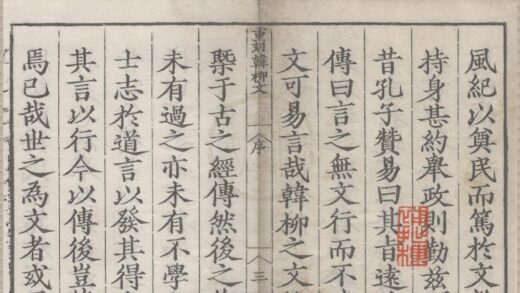 風紀以奠民而篤於文
持身甚約舉政則勤茲
昔孔子贊易曰其旨遠
傳曰言之無文行而不
文可易言哉韓柳之文
重刻韓柳文
序
三
槩于古之經傳然後之
未有過之亦未有不學
士志於道言以發其得
其言以行今以傳後豈
焉已哉世之為文者或